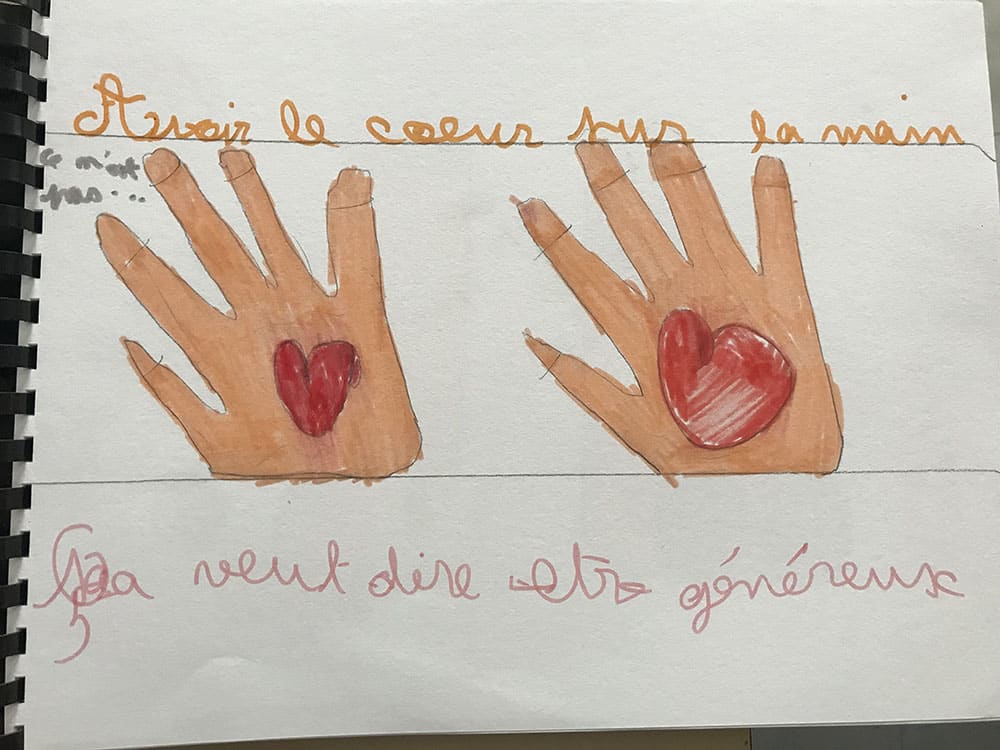 Avoir le coeur sur la main
Ce n'est
pas...
ça veut dire etre généreux